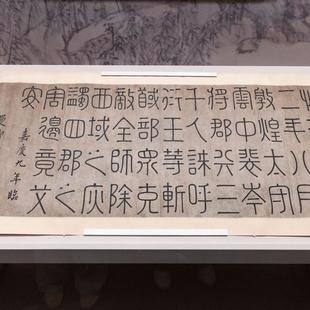 二年八月
敦煌太守
雲中裴岑
將郡兵三
千人誅呼
衍王等斬
馘部衆克
敵全師除
西域之疢
蠲四郡之
害邊竟艾
安
嘉慶九年臨